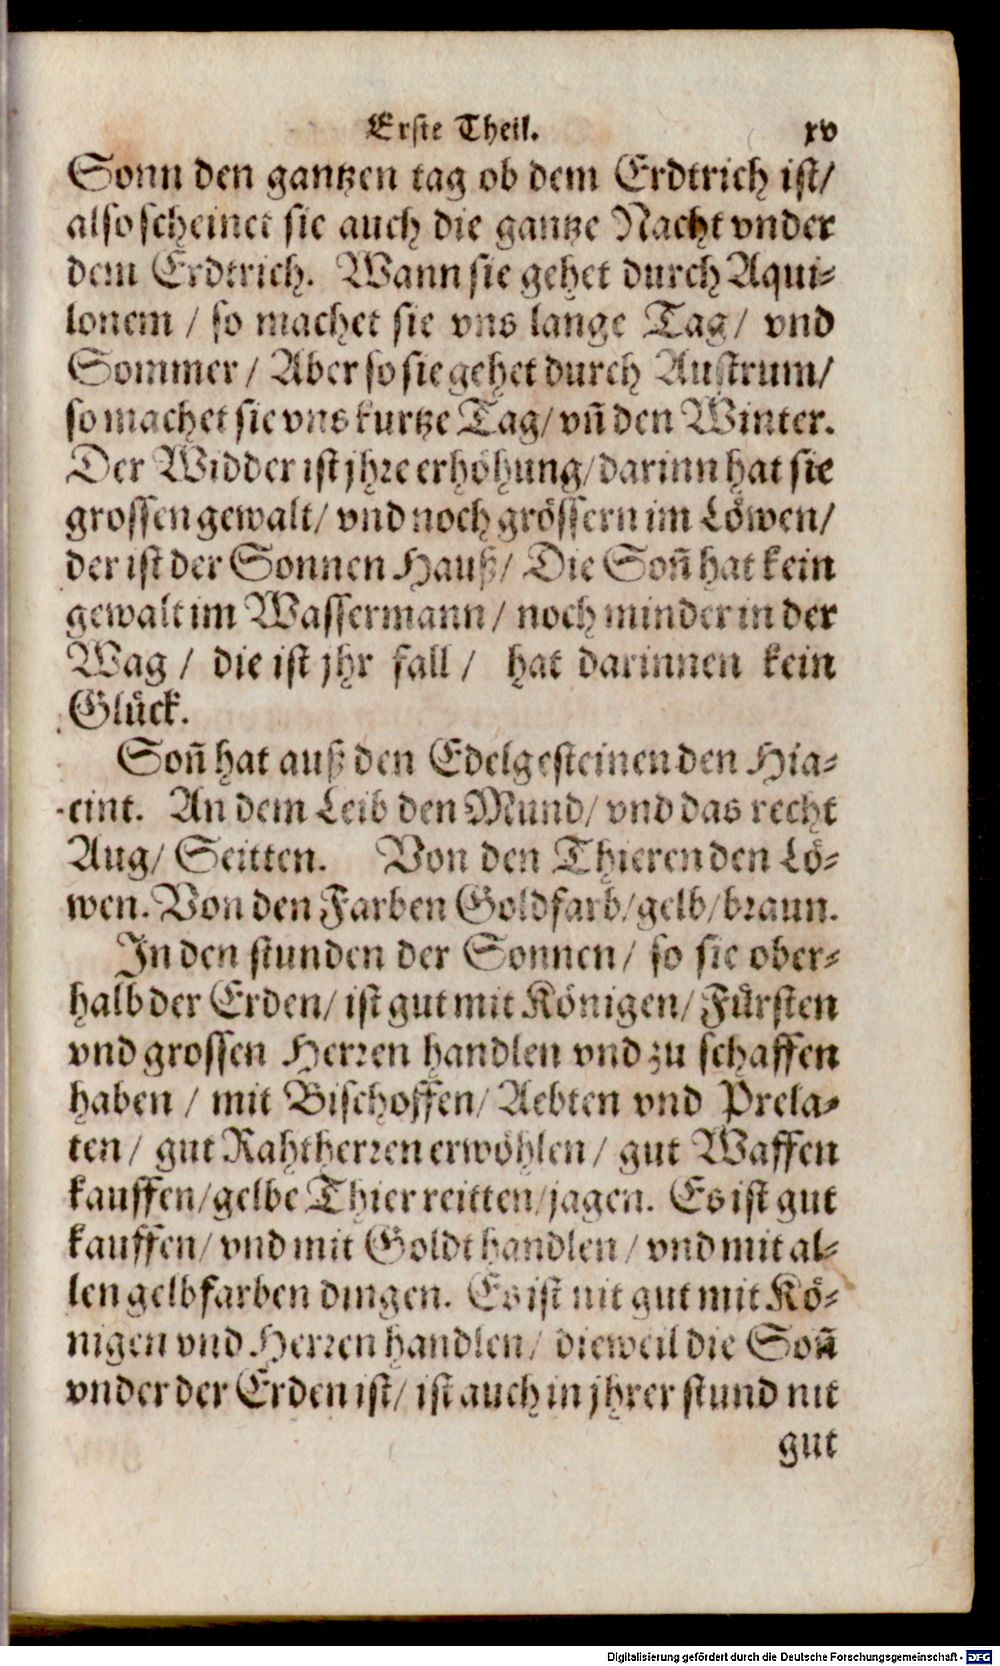 Erste Theil. xv
Sonn den gantzen tag ob dem Erdtrich ist/
also scheinet sie auch die gantze Nacht vnder
dem Erdtrich. Wann sie gehet durch Aqui-
lonem / so machet sie vns lange Tag/ vnd
Sommer / Aber so sie gehet durch Austrum/
so machet sie vns kurtze Tag/ vn̄ den Winter.
Der Widder ist jhre erhöhung/ darinn hat sie
grossen gewalt/ vnd noch grössern im Löwen/
der ist der Sonnen Hauß/ Die Son̄ hat kein
gewalt im Wassermann / noch minder in der
Wag / die ist jhr fall / hat darinnen kein
Glück.
Son̄ hat auß den Edelgesteinen den Hia-
cint. An dem Leib den Mund/ vnd das recht
Aug/ Seitten. Von den Thieren den Lö-
wen. Von den Farben Goldfarb/gelb/braun.
In den stunden der Sonnen / so sie ober-
halb der Erden/ ist gut mit Königen/ Fürsten
vnd grossen Herren handlen vnd zu schaffen
haben / mit Bischoffen/ Aebten vnd Prela-
ten / gut Rahtherren erwöhlen / gut Waffen
kauffen/gelbe Thier reitten/jagen. Es ist gut
kauffen/ vnd mit Goldt handlen / vnd mit al-
len gelbfarben dingen. Es ist nit gut mit Kö-
nigen vnd Herren handlen/ dieweil die Son̄
vnder der Erden ist/ ist auch in jhrer stund nit
gut
Digitalisierung gefördert durch die Deutsche Forschungsgemeinschaft - DFG